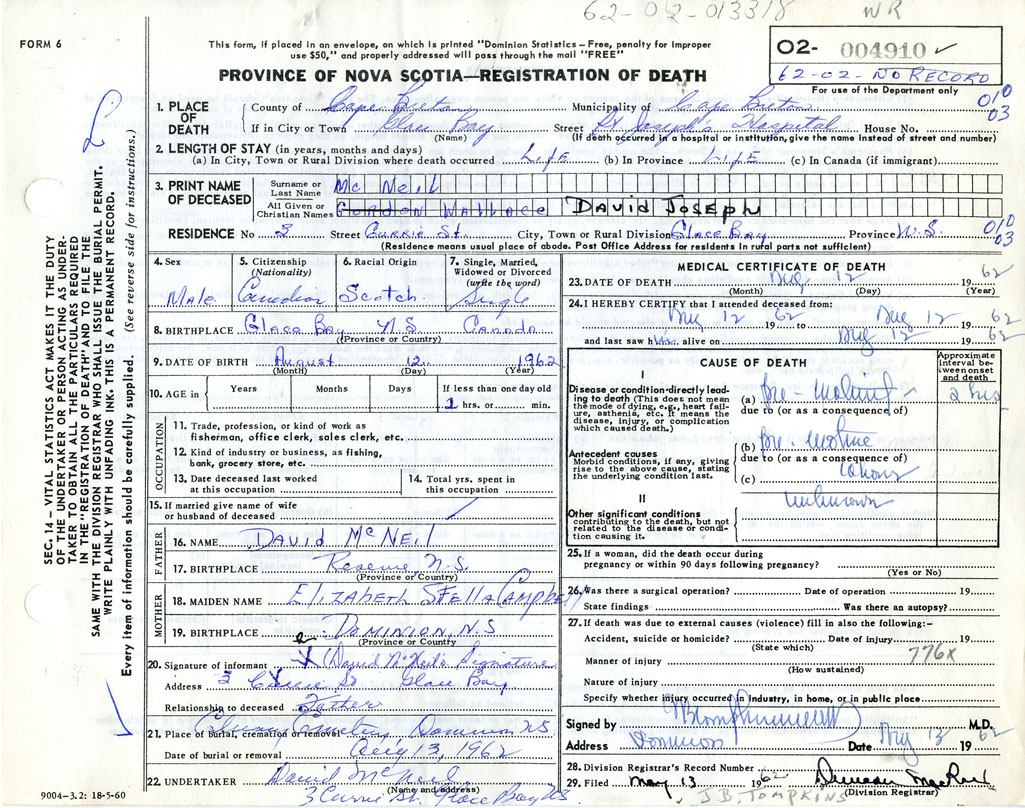 62-02-013318 WR
FORM 6
This form, if placed in an envelope, on which is printed "Dominion Statistics – Free, penalty for improper
use $50," and properly addressed will pass through the mail "FREE"
02- 004910 ✓
62-02-NO RECORD
For use of the Department only
PROVINCE OF NOVA SCOTIA—REGISTRATION OF DEATH
1. PLACE OF DEATH County of Cape Breton Municipality of Cape Breton 010
If in City or Town Glace Bay Street St. Joseph's Hospital House No. 03
(Name) (If death occurred in a hospital or institution, give name instead of street and number)
2. LENGTH OF STAY (in years, months and days)
(a) In City, Town or Rural Division where death occurred LIFE (b) In Province LIFE (c) In Canada (if immigrant)
3. PRINT NAME OF DECEASED Surname or Last Name Mc Neil
All Given or Christian Names Gordon Wallace David Joseph
RESIDENCE No 3 Street Currie St. City, Town or Rural Division Glace Bay Province N.S. 010 03
(Residence means usual place of abode. Post Office Address for residents in rural parts not sufficient)
SEC. 14—VITAL STATISTICS ACT MAKES IT THE DUTY
OF THE UNDERTAKER OR PERSON ACTING AS UNDER-
TAKER TO OBTAIN ALL THE PARTICULARS REQUIRED
IN THE "REGISTRATION OF DEATH" AND TO FILE THE
SAME WITH THE DIVISION REGISTRAR WHO SHALL ISSUE THE BURIAL PERMIT.
WRITE PLAINLY WITH UNFADING INK. THIS IS A PERMANENT RECORD.
Every item of information should be carefully supplied. (See reverse side for instructions.)
4. Sex Male
5. Citizenship (Nationality) Canadian
6. Racial Origin Scotch
7. Single, Married, Widowed or Divorced (write the word) Single
8. BIRTHPLACE Glace Bay N.S. Canada
(Province or Country)
9. DATE OF BIRTH August 12 1962
(Month) (Day) (Year)
10. AGE in Years Months Days If less than one day old
2 hrs. or min.
OCCUPATION
11. Trade, profession, or kind of work as
fisherman, office clerk, sales clerk, etc.
12. Kind of industry or business, as fishing,
bank, grocery store, etc.
13. Date deceased last worked
at this occupation
14. Total yrs. spent in
this occupation
15. If married give name of wife
or husband of deceased
FATHER
16. NAME David McNeil
17. BIRTHPLACE Reserve, N.S.
(Province or Country)
MOTHER
18. MAIDEN NAME Elizabeth Stella Campbell
19. BIRTHPLACE Dominion, N.S
(Province or Country
20. Signature of informant X (David McNeil's Signature
Address 3 Currie St Glace Bay
Relationship to deceased Father
21. Place of burial, cremation or removal Cemetery Dominion NS
Date of burial or removal Aug 13, 1962
22. UNDERTAKER David McNeil
(Name and address)
3 Currie St. Glace Bay NS
9004–3.2: 18-5-60
MEDICAL CERTIFICATE OF DEATH
23. DATE OF DEATH Aug 12 1962
(Month) (Day) (Year)
24. I HEREBY CERTIFY that I attended deceased from:
Aug 12 1962 to Aug 12 1962
and last saw him alive on Aug 12 1962
CAUSE OF DEATH
Approximate interval between onset and death
I
Disease or condition directly lead-
ing to death (This does not mean
the mode of dying, e.g., heart fail-
ure, asthenia, etc. It means the
disease, injury, or complication
which caused death.)
(a) 2 hrs
due to (or as a consequence of)
(b)
due to (or as a consequence of)
(c)
Antecedent causes
Morbid conditions, if any, giving
rise to the above cause, stating
the underlying condition last.
unknown
II
Other significant conditions
contributing to the death, but not
related to the disease or condi-
tion causing it.
25. If a woman, did the death occur during
pregnancy or within 90 days following pregnancy?
(Yes or No)
26. Was there a surgical operation? Date of operation 19
State findings Was there an autopsy?
27. If death was due to external causes (violence) fill in also the following:-
Accident, suicide or homicide? Date of injury 19
(State which)
776x
Manner of injury
(How sustained)
Nature of injury
Specify whether injury occurred in Industry, in home, or in public place
Signed by M.D.
Address Dominion Date Aug 12 1962
28. Division Registrar's Record Number
29. Filed May 13 1962
(Division Registrar)
J.B. TOMPKINS